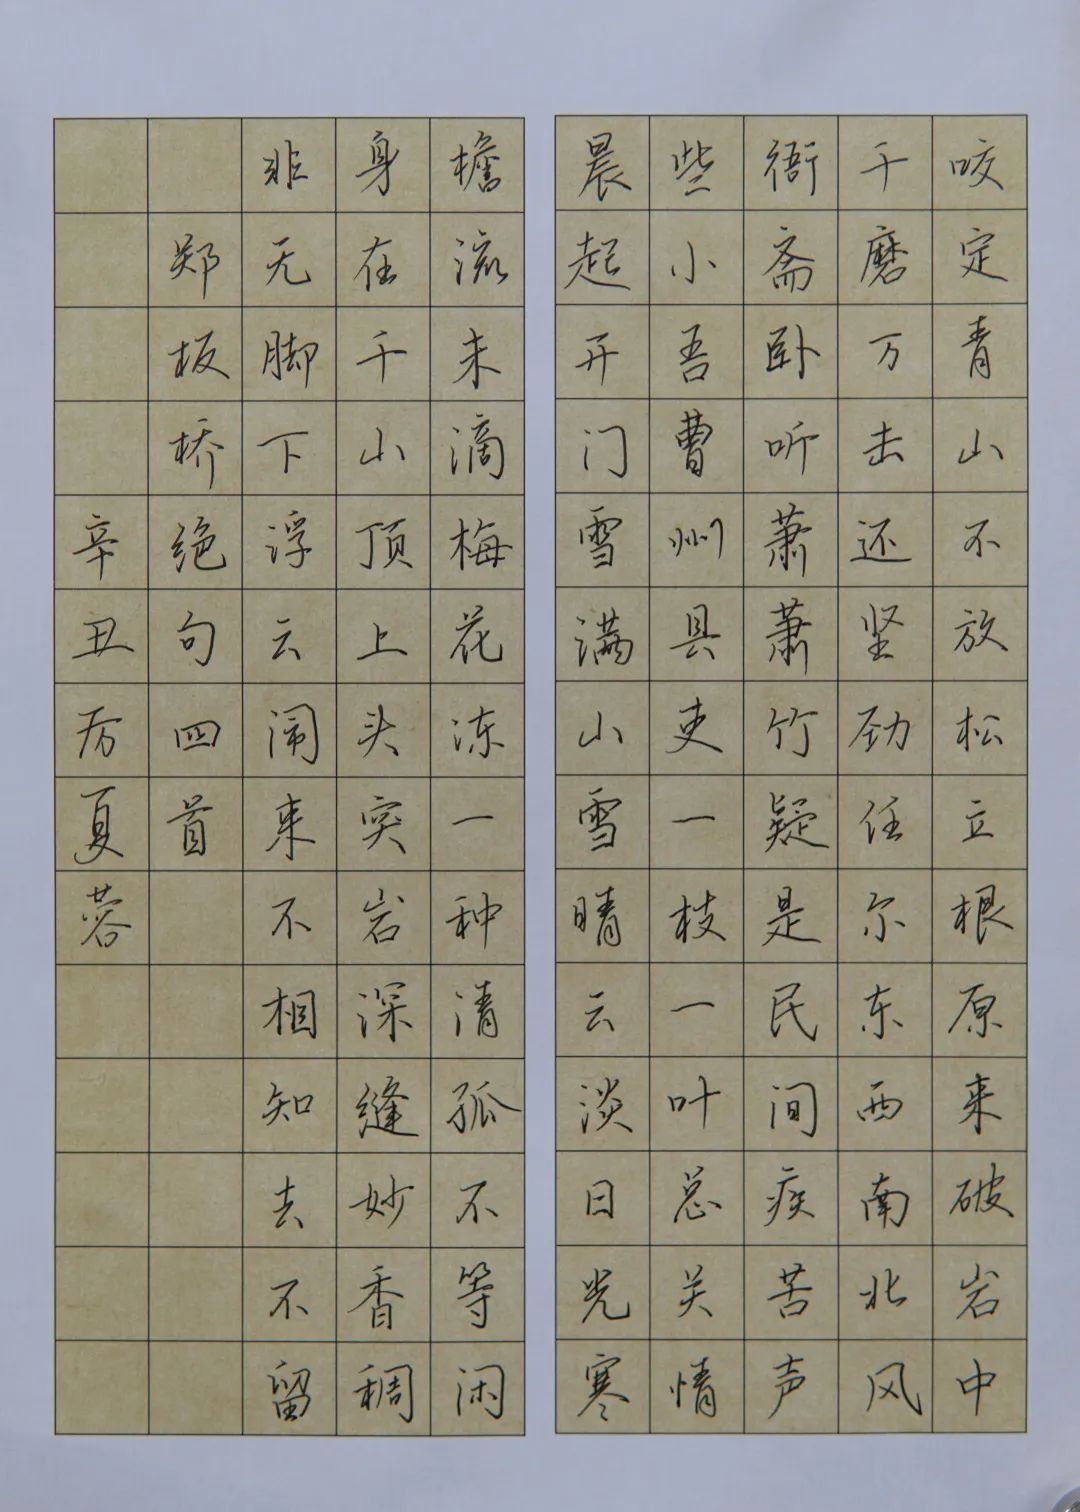 咬定青山不放松立根原来破岩中
千磨万击还坚劲任尔东西南北风
衙斋卧听萧萧竹疑是民间疾苦声
些小吾曹州县吏一枝一叶总关情
晨起开门雪满山雪晴云淡日光寒
檐流未滴梅花冻一种清孤不等闲
身在千山顶上头突岩深缝妙香稠
非无脚下浮云闹来不相知去不留
郑板桥绝句四首
辛丑夏蓉